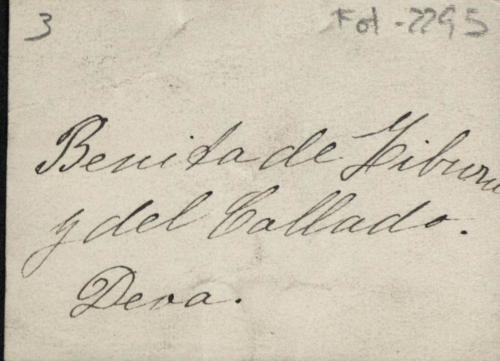 3 Fot-2295
Benita de
y del Collado.
Deva.